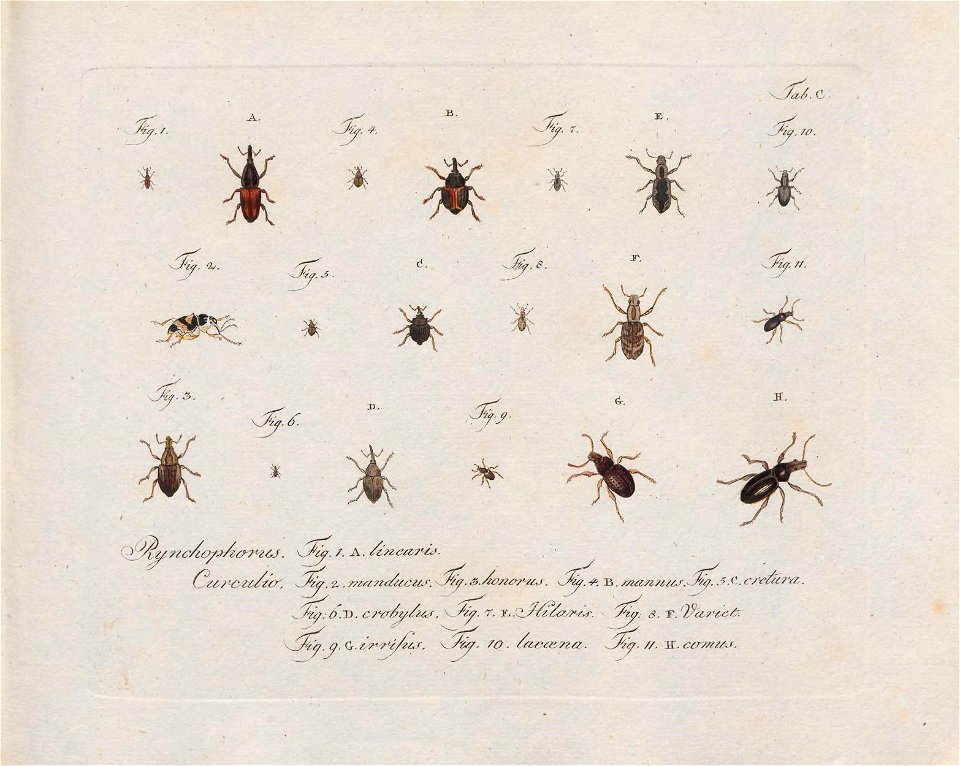 Tab. C.
Fig. 1. A. Fig. 4. B. Fig. 7. E. Fig. 10.
Fig. 2. Fig. 5. C. Fig. 8. F. Fig. 11.
Fig. 3. Fig. 6. D. Fig. 9. G. H.
Rynchophorus. Fig. 1. A. linearis.
Curculio. Fig. 2. manducus. Fig. 3. honorus. Fig. 4. B. mannus. Fig. 5. C. cretura.
Fig. 6. D. crobylus. Fig. 7. E. Hilaris. Fig. 8. F. Variet.
Fig. 9. G. irriſus. Fig. 10. lacæna. Fig. 11. H. comus.